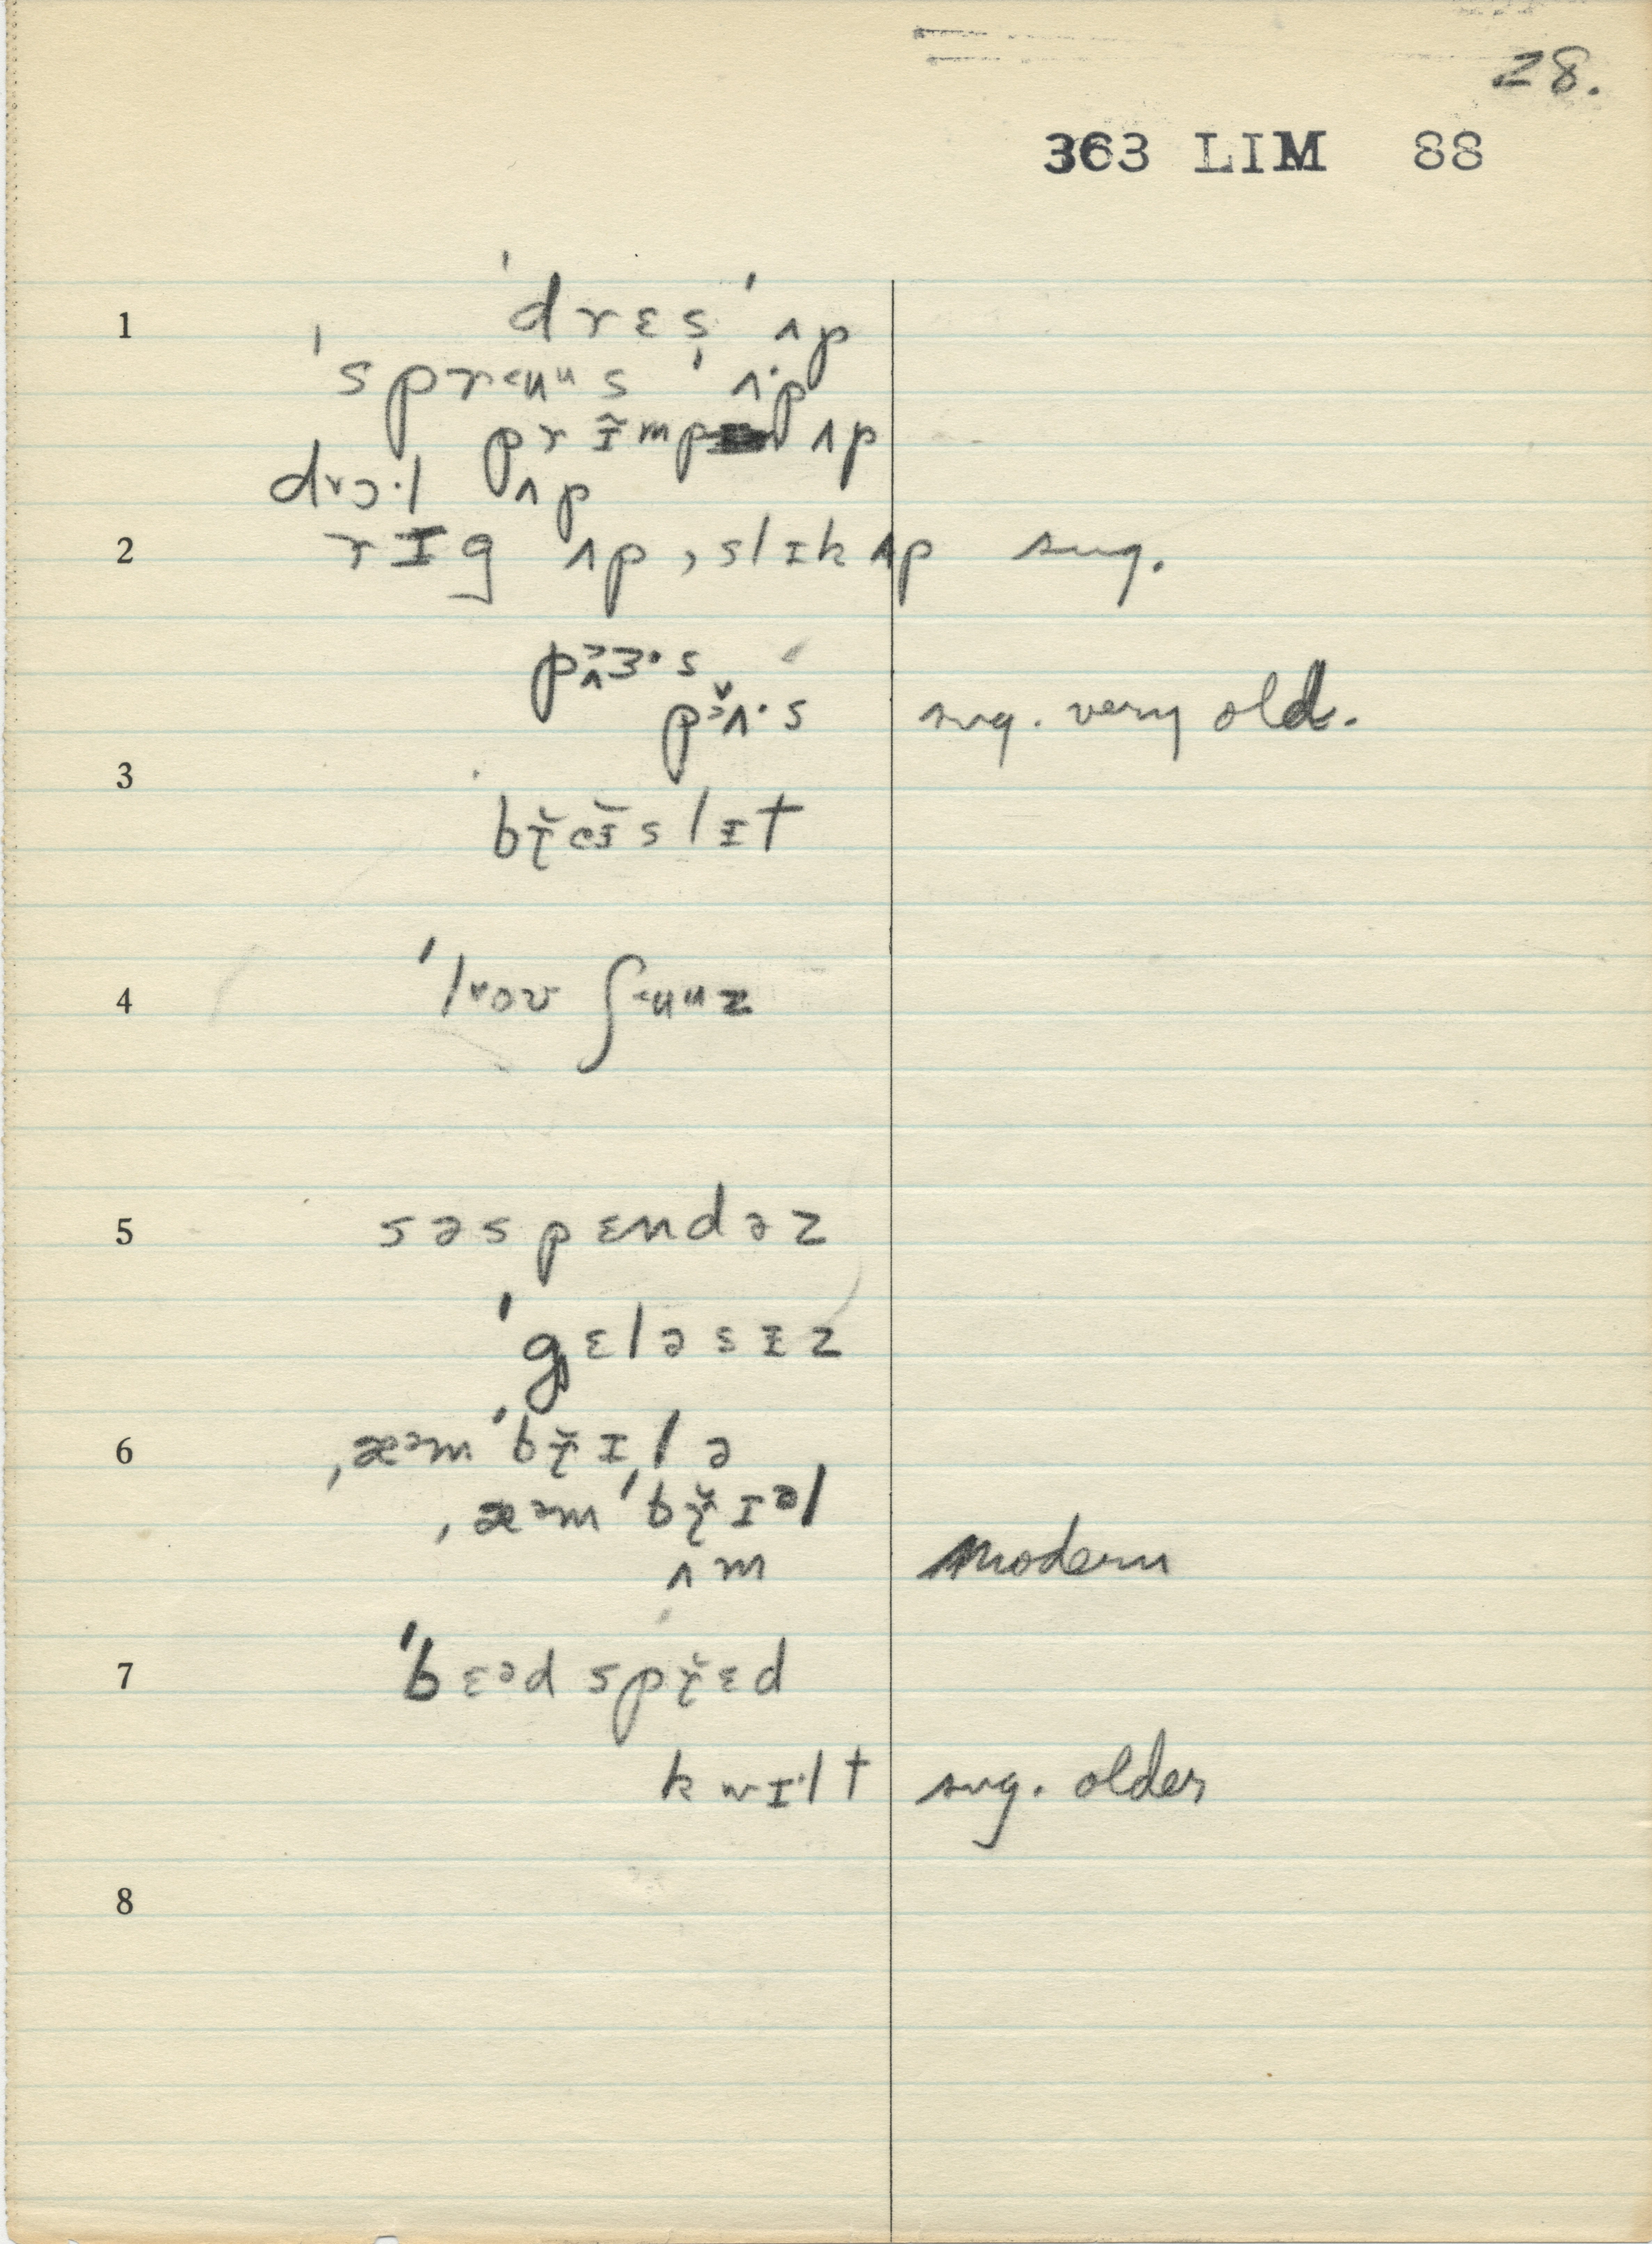 28.
363 LIM 88
1 ˈdrɛs ˈʌp
ˈspr<ʉᵘs ˈʌ·p
prɪ̃mp ʌp
drɔ·l ʌp
2 rɪg ʌp, slɪk ʌp sug.
pʌɜ·s
pʌ·s sug. very old.
3
br̆ɛɪslɪt
4 ˈlʌov ʃ<ʉᵘz
5 səspɛndəz
ˈgɛləsɪz
6 ˌæᵊmˈbr̆ɪlə
ˌæᵊmˈbr̆ɪᵊl
ʌm modern
7 ˈbɛᵊd spr̆ɛd
kwɪ·lt sug. older
8